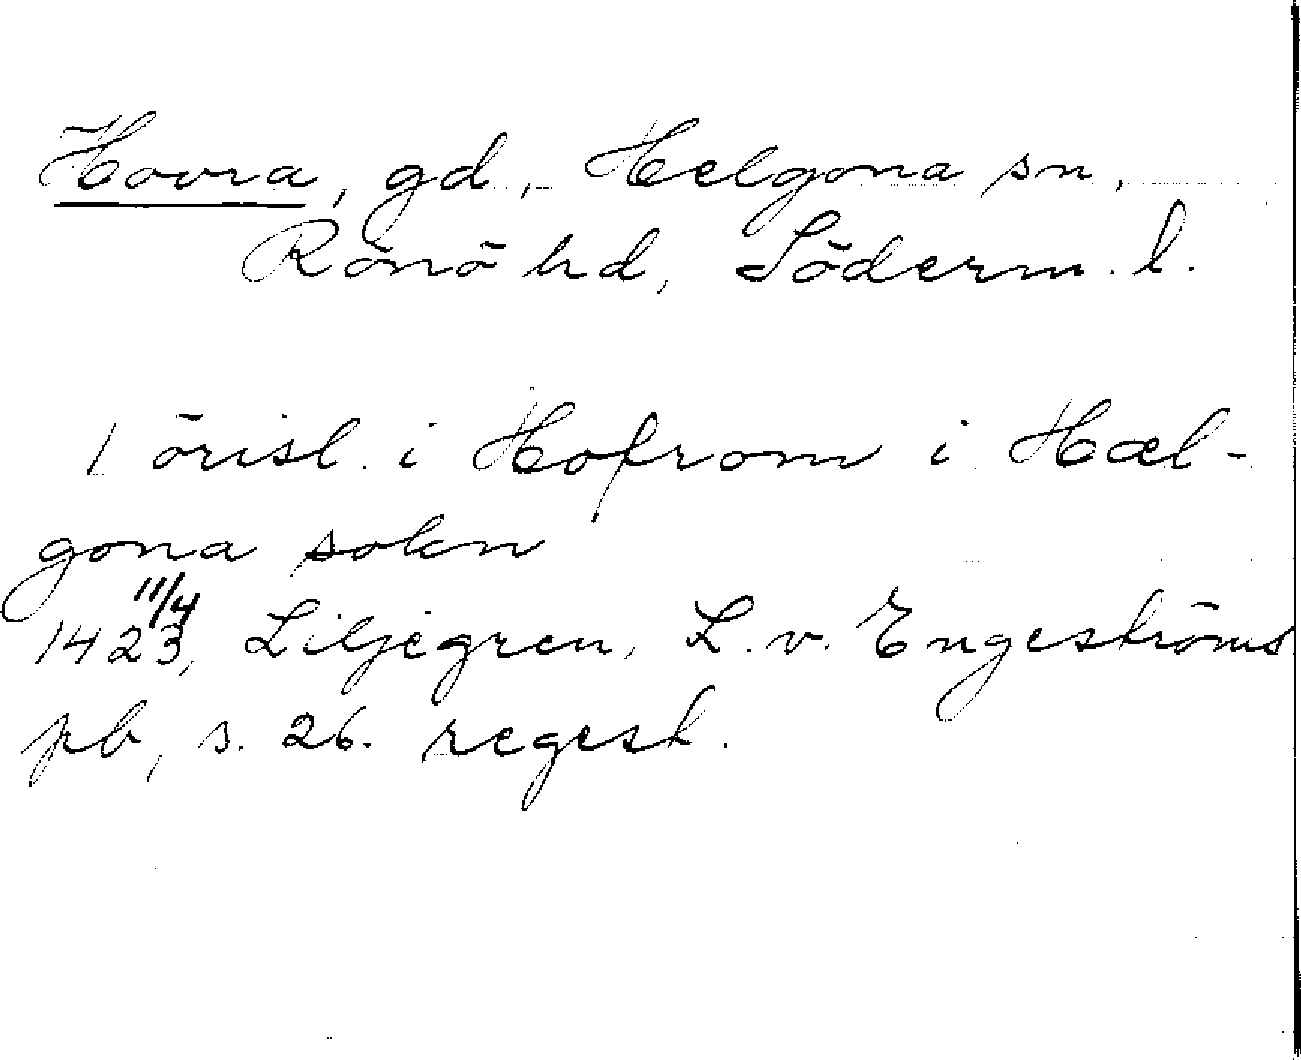 Hovra, gd, Helgona sn,
Rönö hd, Söderm. l.
1 örisl. i Hofrom i Hæl-
gona sokn
11/4
1423, Liljegren, L. v. Engeströms
pb, s. 26. regest.